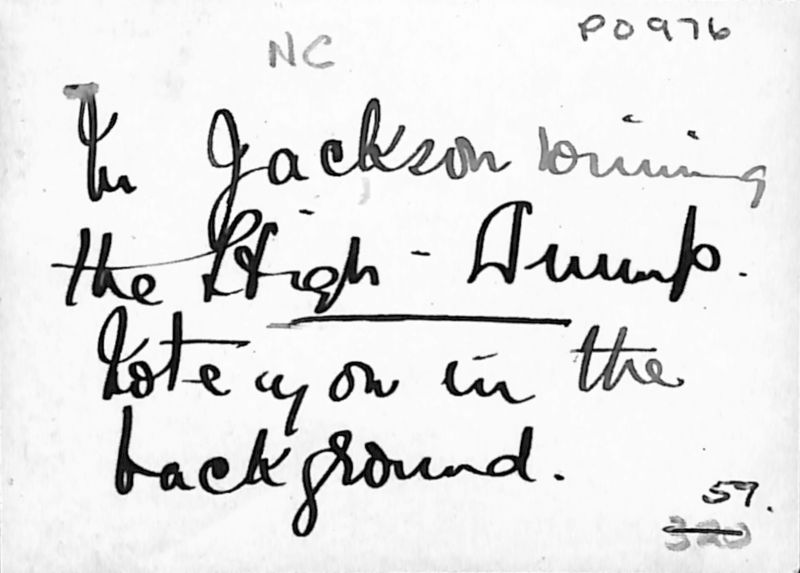 P0976
NC
Jackson winning
the High - Jump.
Note in the
background.
59.
320